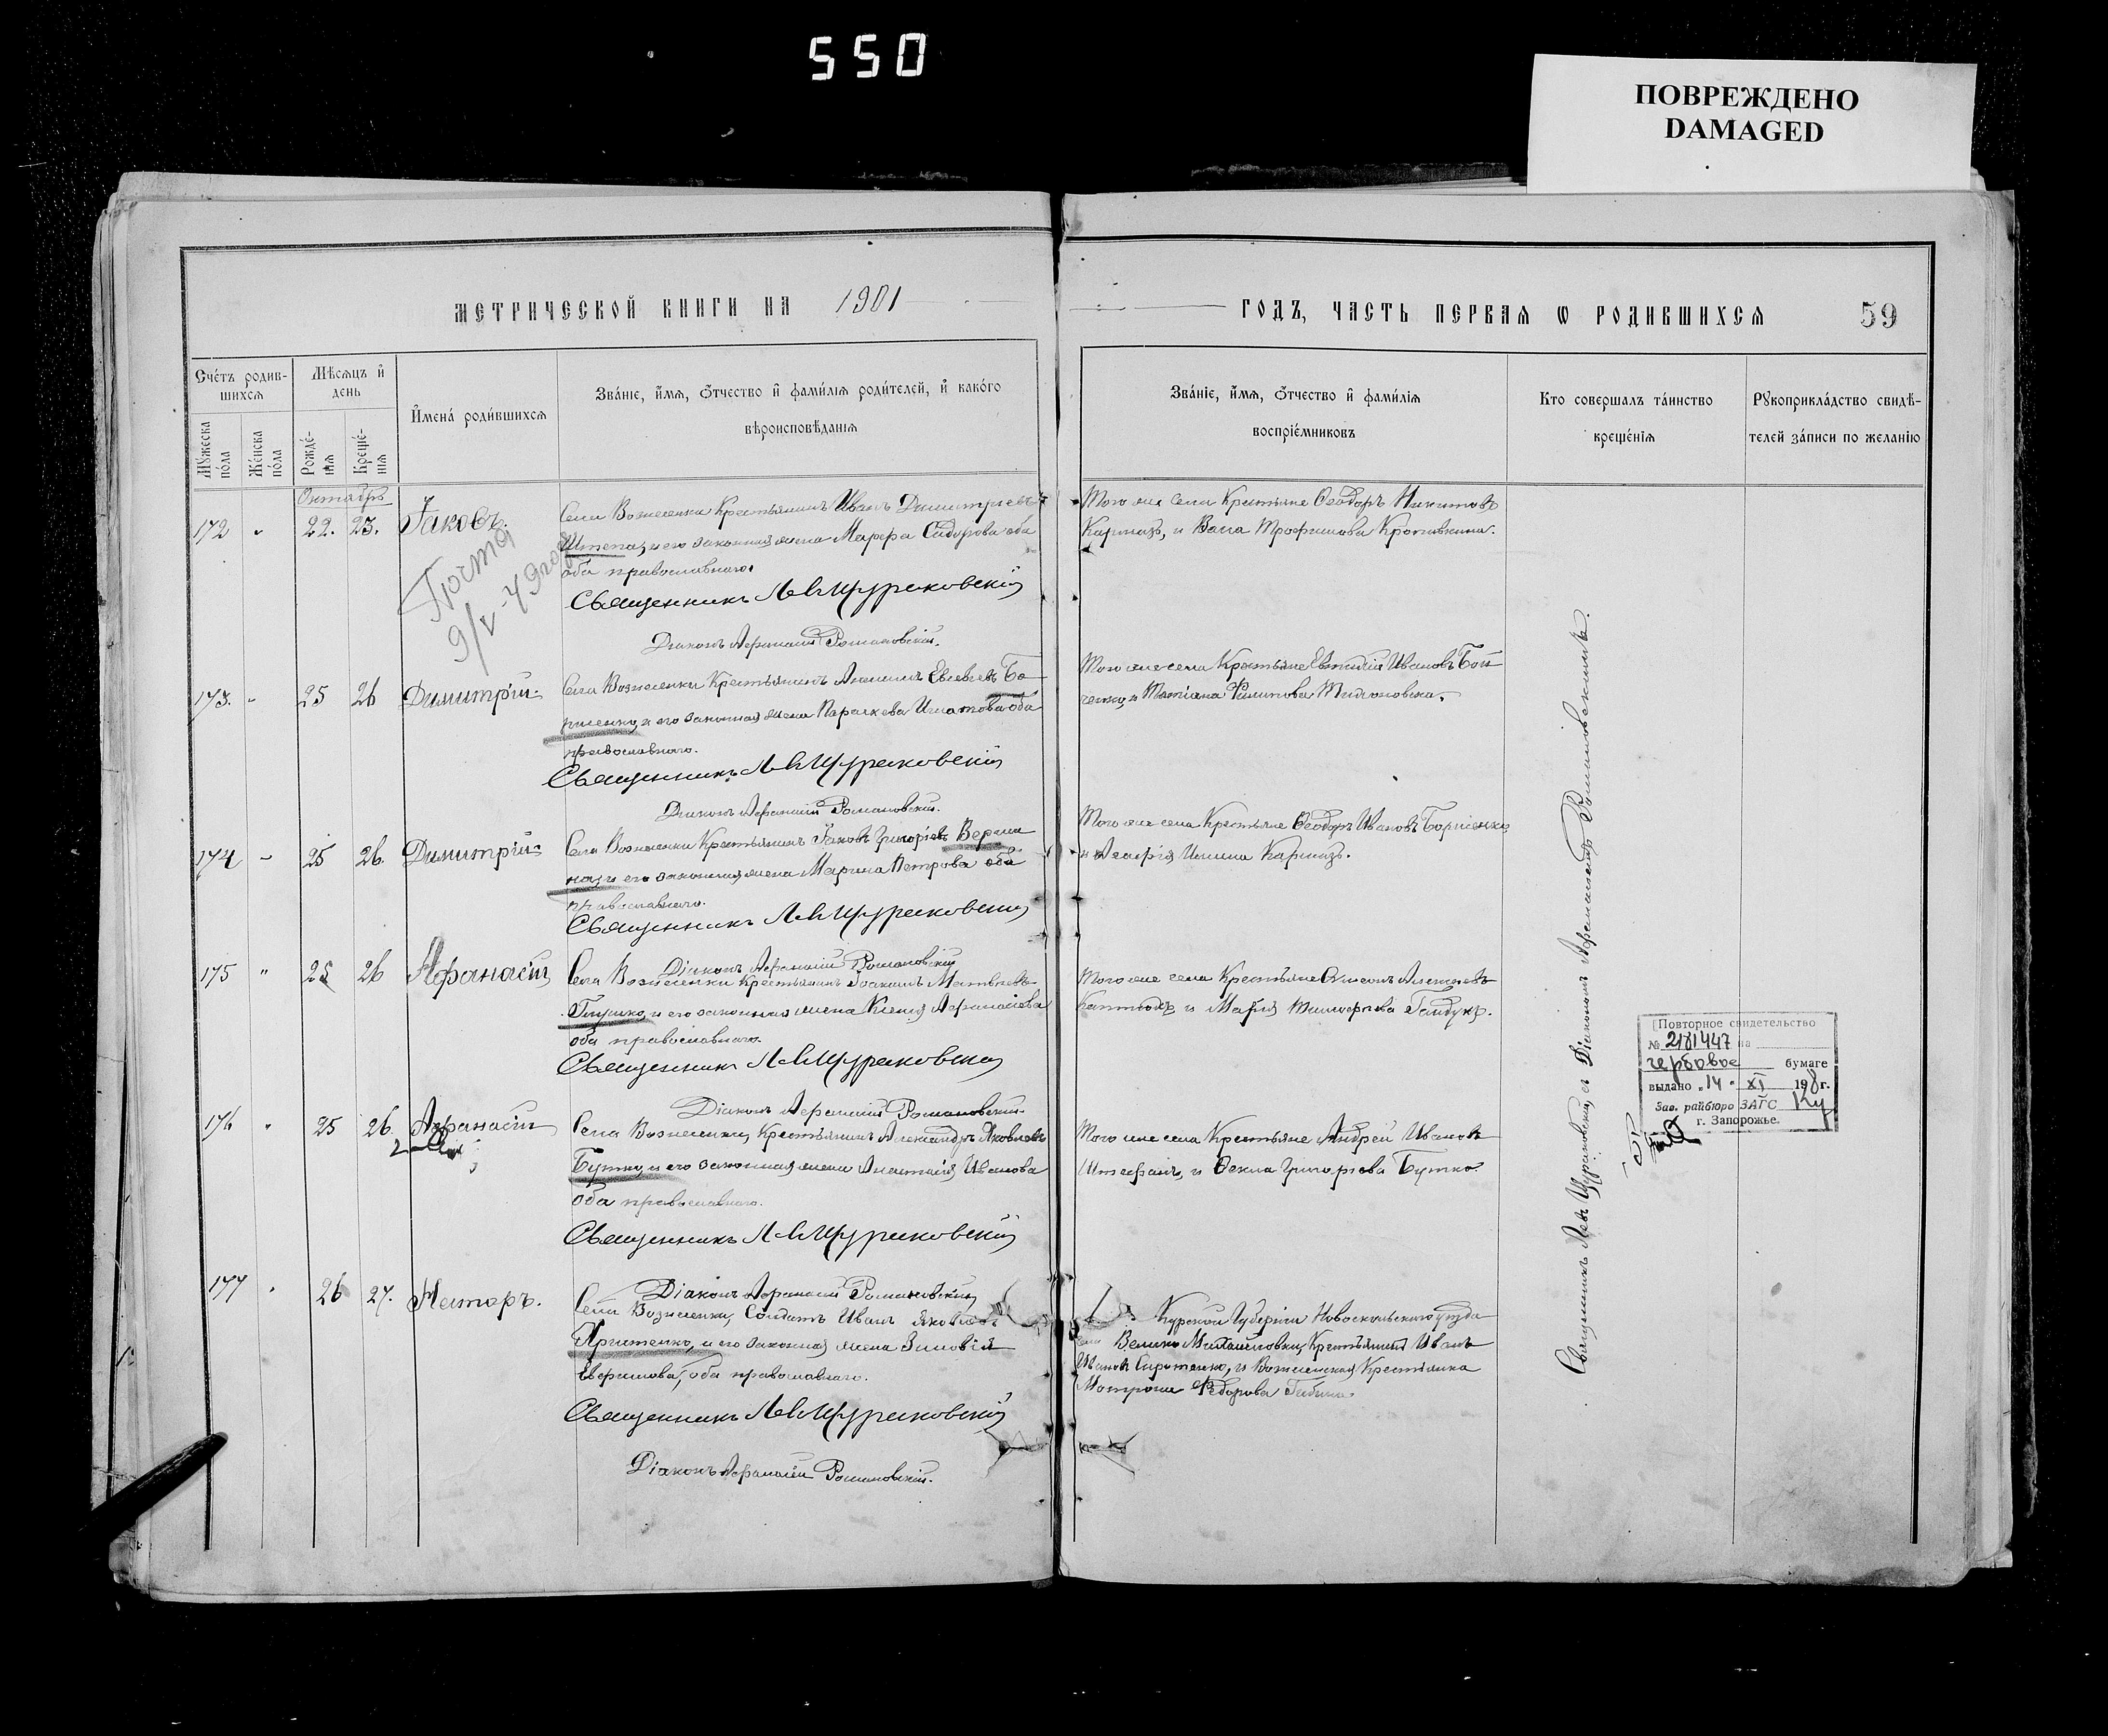 550
ПОВРЕЖДЕНО
DAMAGED
МЕТРИЧЕСКОЙ КНИГИ НА 1901
ГОДЪ, ЧАСТЬ ПЕРВАЯ Ѡ РОДИВШИХСЯ 59
Счетъ родив-
шихся
Мужеска
пола
Женска
пола
Мѣсяцъ и
день
Рожде-
нія
Креще-
нія
Имена родившихся
Званіе, имя, отчество и фамилія родителей, и какого
вѣроисповѣданія
Званіе, имя, отчество и фамилія
воспріемниковъ
Кто совершалъ таинство
крещенія
Рукоприкладство свидѣ-
телей записи по желанію
Октябрь
172 " 22. 23. Іаковъ.
Села Вознесенки Крестьянинъ Иванъ Димитріевъ
и его законная жена Марфа Сидорова оба
оба православнаго.
Священникъ Левъ Щурановскій
Діаконъ Афанасій Романовскій.
Того же села Крестьяне Ѳеодоръ Никитовъ
Кармазъ, и Васса Трофимова
173. " 25 26 Димитрій
Села Вознесенки Крестьянинъ Бо-
рисенко, и его законная жена Параскева Игнатова оба
православнаго.
Священникъ Левъ Щурановскій
Діаконъ Афанасій Романовскій.
Того же села Крестьяне Евтихій Ивановъ Бой
ченко, и Татіана Филипова
174 " 25 26 Димитрій
Села Вознесенки Крестьянинъ Іаковъ Григоріевъ
и его законная жена Марина Петрова оба
православнаго.
Священникъ Левъ Щурановскій
Діаконъ Афанасій Романовскій
Того же села Крестьяне Ѳеодоръ Ивановъ Борисенко
и Кармазъ.
175 " 25 26 Афанасій
Села Вознесенки Крестьянинъ Іоакимъ Матвѣевъ
Глушко, и его законная жена Ксенія Афанасіева
оба православнаго.
Священникъ Левъ Щурановскій
Діаконъ Афанасій Романовскій
Того же села Крестьяне Алексѣевъ
и Марія Тимофеева Гайдукъ.
176 " 25 26 Афанасій
Села Вознесенки, Крестьянинъ Александръ Яковлевъ
Бутко, и его законная жена Анастасія Иванова
оба православнаго.
Священникъ Левъ Щурановскій
Діаконъ Афанасій Романовскій
Того же села Крестьяне Андрей Ивановъ
Штефанъ, и Ѳекла Григорьева Бутко
177 " 26 27. Несторъ.
Села Вознесенки, Солдатъ Иванъ Яковлевъ
и его законная жена Зиновія
оба православнаго.
Священникъ Левъ Щурановскій
Діаконъ Афанасій Романовскій.
Курской Губерніи Новооскольскаго уѣзда
Велико Михайловки, Крестьянинъ Иванъ
Ивановъ Сиротенко, и Вознесенская Крестьянка
Матрона Ѳедорова
Священникъ Левъ Щурановскій, съ Діакономъ Афанасіемъ Романовскимъ.
Повторное свидетельство
№ 2181447 на
гербовое бумаге
выдано "14" XI 198 г.
Зав. райбюро ЗАГС
г. Запорожье.